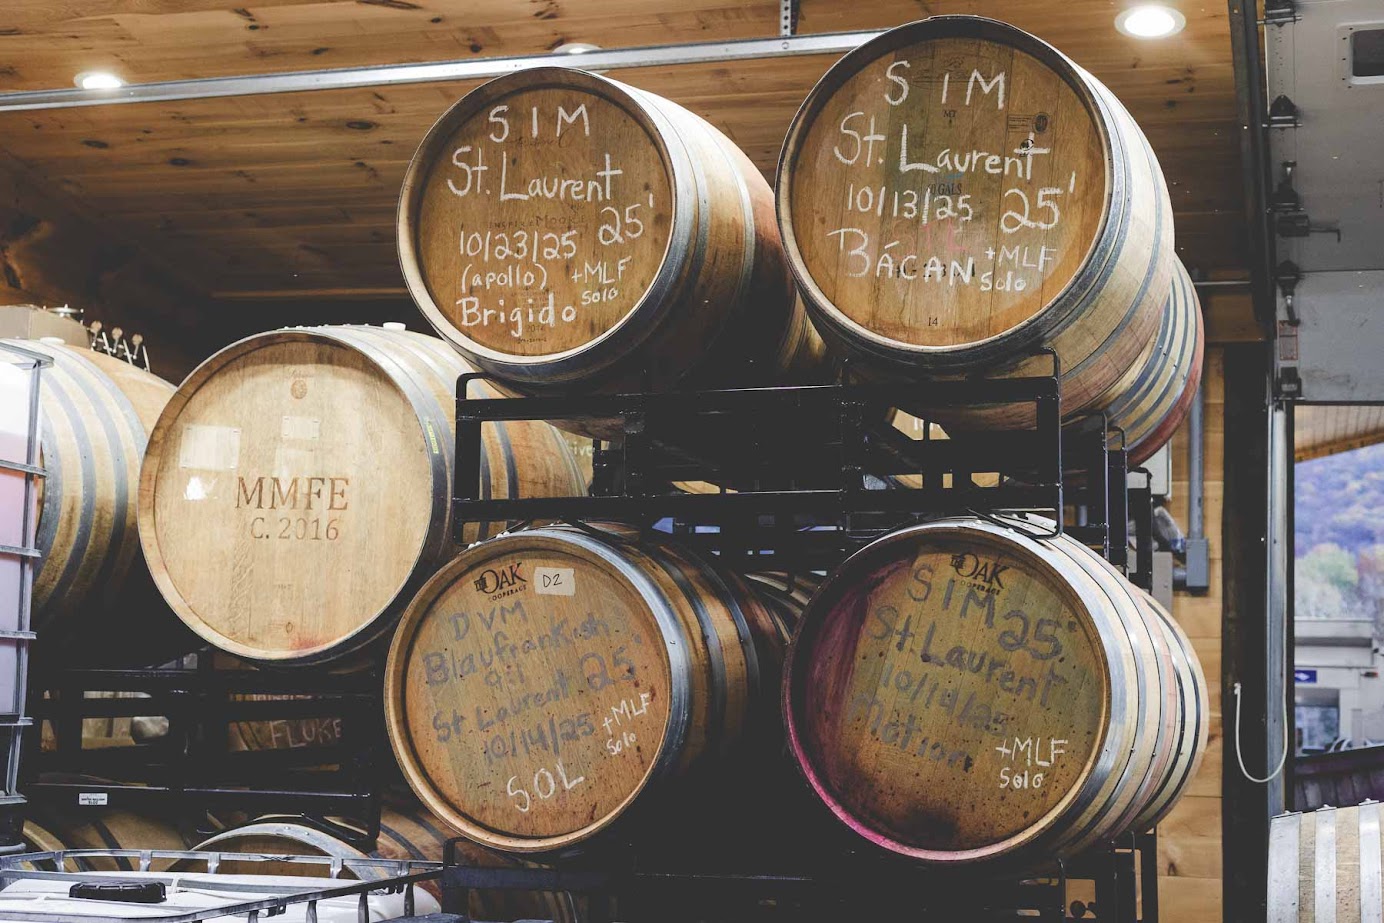 SIM
St. Laurent
25'
10/23/25
(apollo)
+MLF
Solo
Brigido
SIM
St. Laurent
GALS
10/13/25
25'
BÁCAN
+MLF
Solo
14
MMFE
C. 2016
OAK
COOPERAGE
D2
DVM
Blaufrankish
St Laurent
25'
10/14/25
+MLF
Solo
SOL
OAK
SIM
25'
St. Laurent
10/14/25
Motion
+MLF
Solo
FLUKE